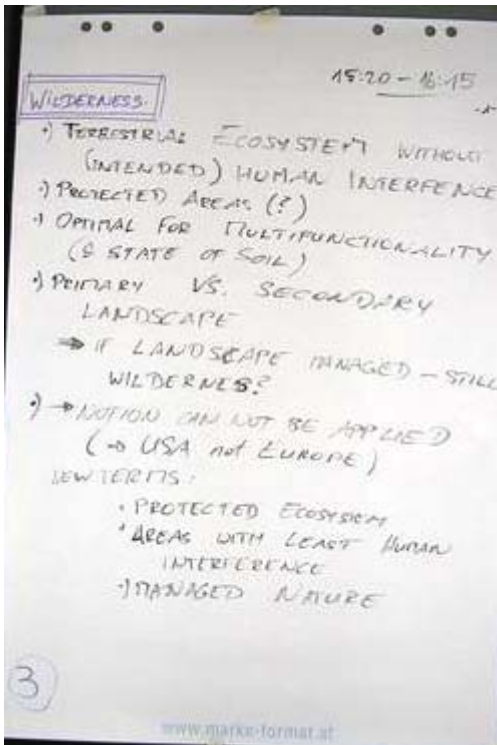 15:20 - 16:15
WILDERNESS.
·) TERRESTRIAL ECOSYSTEM WITHOUT
(INTENDED) HUMAN INTERFENCE
·) PROTECTED AREAS (?)
·) OPTIMAL FOR MULTIFUNCTIONALITY
(& STATE OF SOIL)
·) PRIMARY VS. SECONDARY
LANDSCAPE
➔ IF LANDSCAPE MANAGED - STILL
WILDERNES?
·) → NOTION CAN NOT BE APPLIED
(→ USA not EUROPE)
NEW TERMS:
· PROTECTED ECOSYSTEM
· AREAS WITH LEAST HUMAN
INTERFERENCE
·) MANAGED NATURE
3
www.marke-format.at